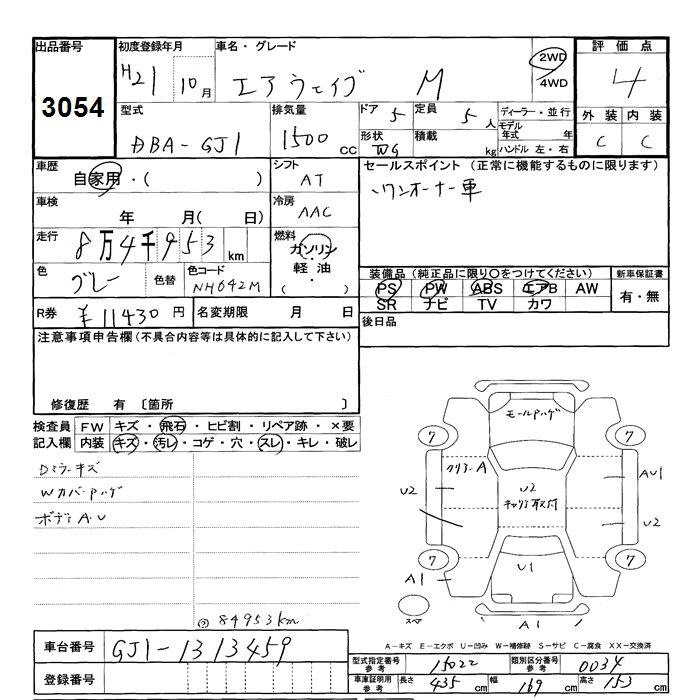 出品番号 初度登録年月 車名・グレード 評価点
3054 H21 10月 エアウェイブ M 2WD 4WD 4
型式 排気量 ドア 5 定員 5人 ディーラー・並行 外装 内装
DBA-GJ1 1500cc 形状 WG 積載 kg モデル年式 年 ハンドル 左・右 C C
車歴 シフト セールスポイント(正常に機能するものに限ります)
自家用・( ) AT ワンオーナー車
車検 年 月( 日) 冷房 AAC
走行 8万4千953km 燃料 ガソリン・軽油・( )
色 グレー 色替 色コード NH642M
装備品(純正品に限り○をつけてください) 新車保証書
PS PW ABS エアB AW 有・無
SR ナビ TV カワ
R券 ¥11430円 名変期限 月 日 後日品
注意事項申告欄(不具合内容等は具体的に記入して下さい)
修復歴 有 〔箇所 〕
検査員 FW キズ・飛石・ヒビ割・リペア跡・×要
記入欄 内装 キズ・汚レ・コゲ・穴・スレ・キレ・破レ
Dミラーキズ
WカバーPハゲ
ボディA・U
モールPハゲ
7 7
クリアーA AU1
U2 U2 キャリア取付 U2
7 7
A1 U1
スマ A1
84953km
A-キズ E-エクボ U-凹み W-補修跡 S-サビ C-腐食 XX-交換済
車台番号 GJ1-1313459
型式指定番号参考 15022 類別区分番号参考 0034
登録番号 車庫証明用参考 長さ 435cm 幅 169cm 高さ 153cm